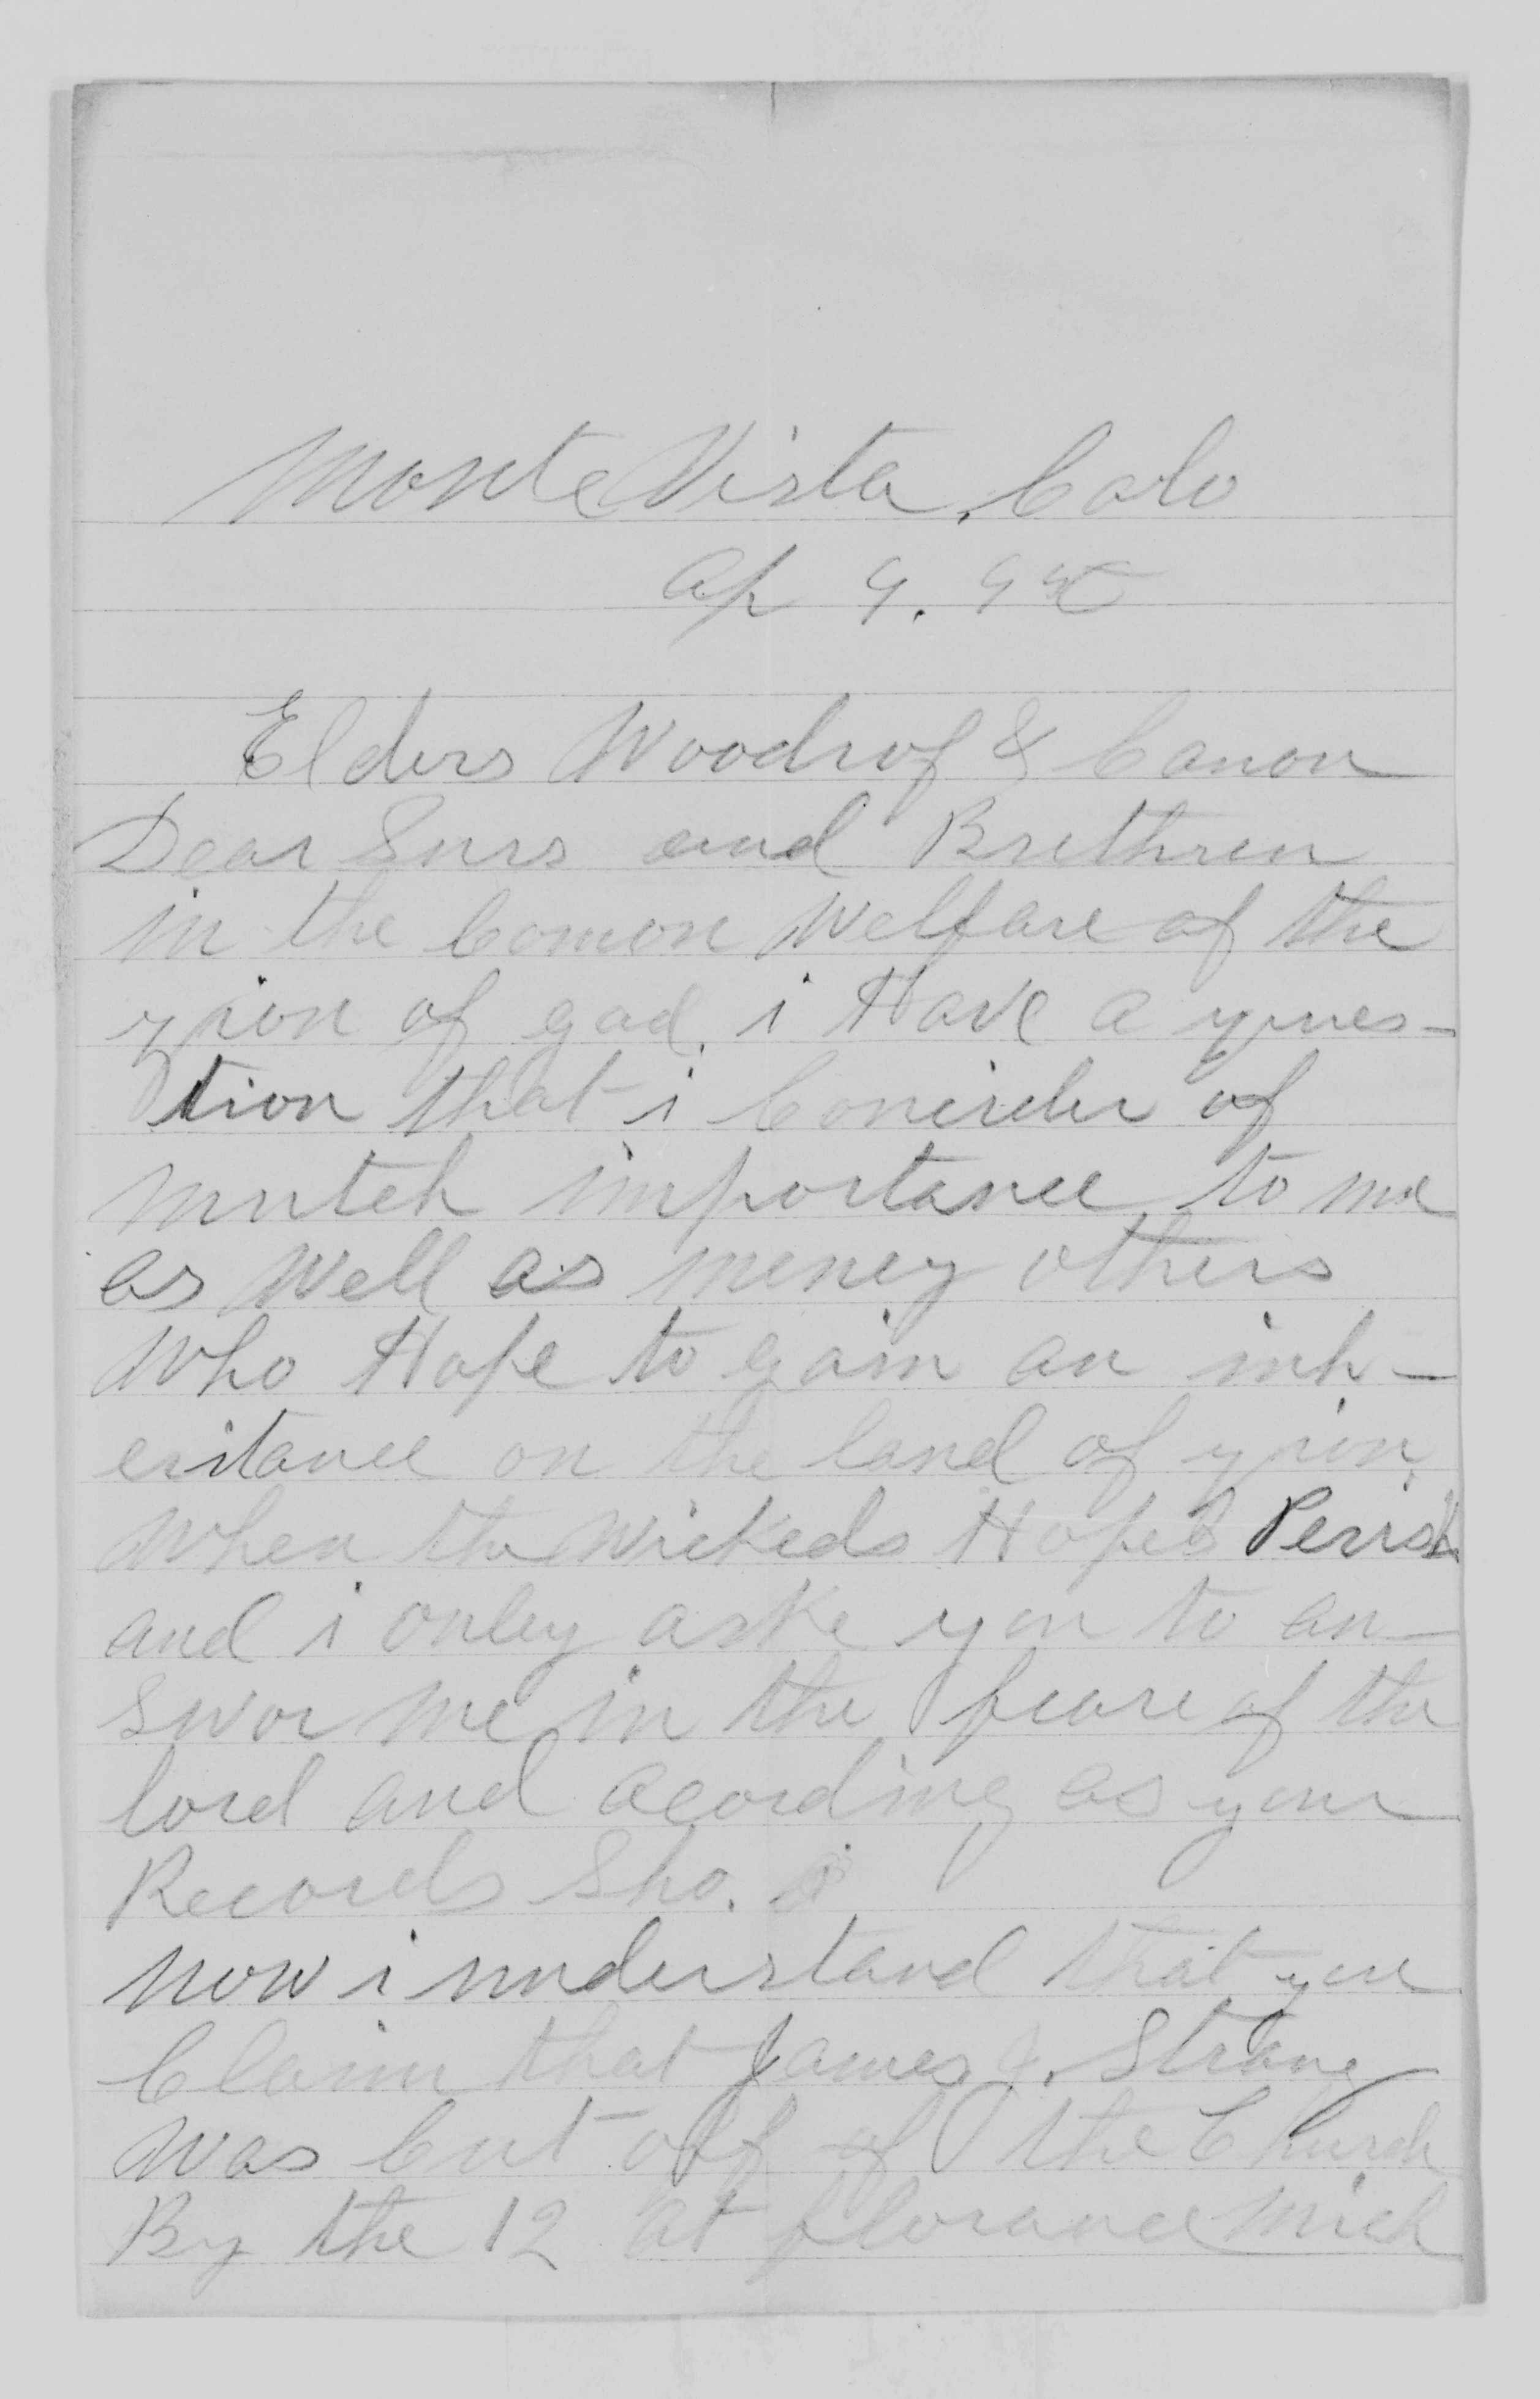 Monte Vista, Colo
Ap 9. 9
Elders Woodrof & Canon
Dear Surs and Brethren
in the Comon Welfare of the
zion of god, i Have a ques-
tion that i Concider of
mutch importance to me
as Well as meney others
Who Hope to gain an inh-
eritance on the land of zion,
When the Wickeds Hopes Perish
and i onley aske you to an-
swor me in the feare of the
lord and acording as your
Records Sho.
now i understand that you
Claim that James J. Strang
Was Cut off of the Church
By the 12 at florance Mich